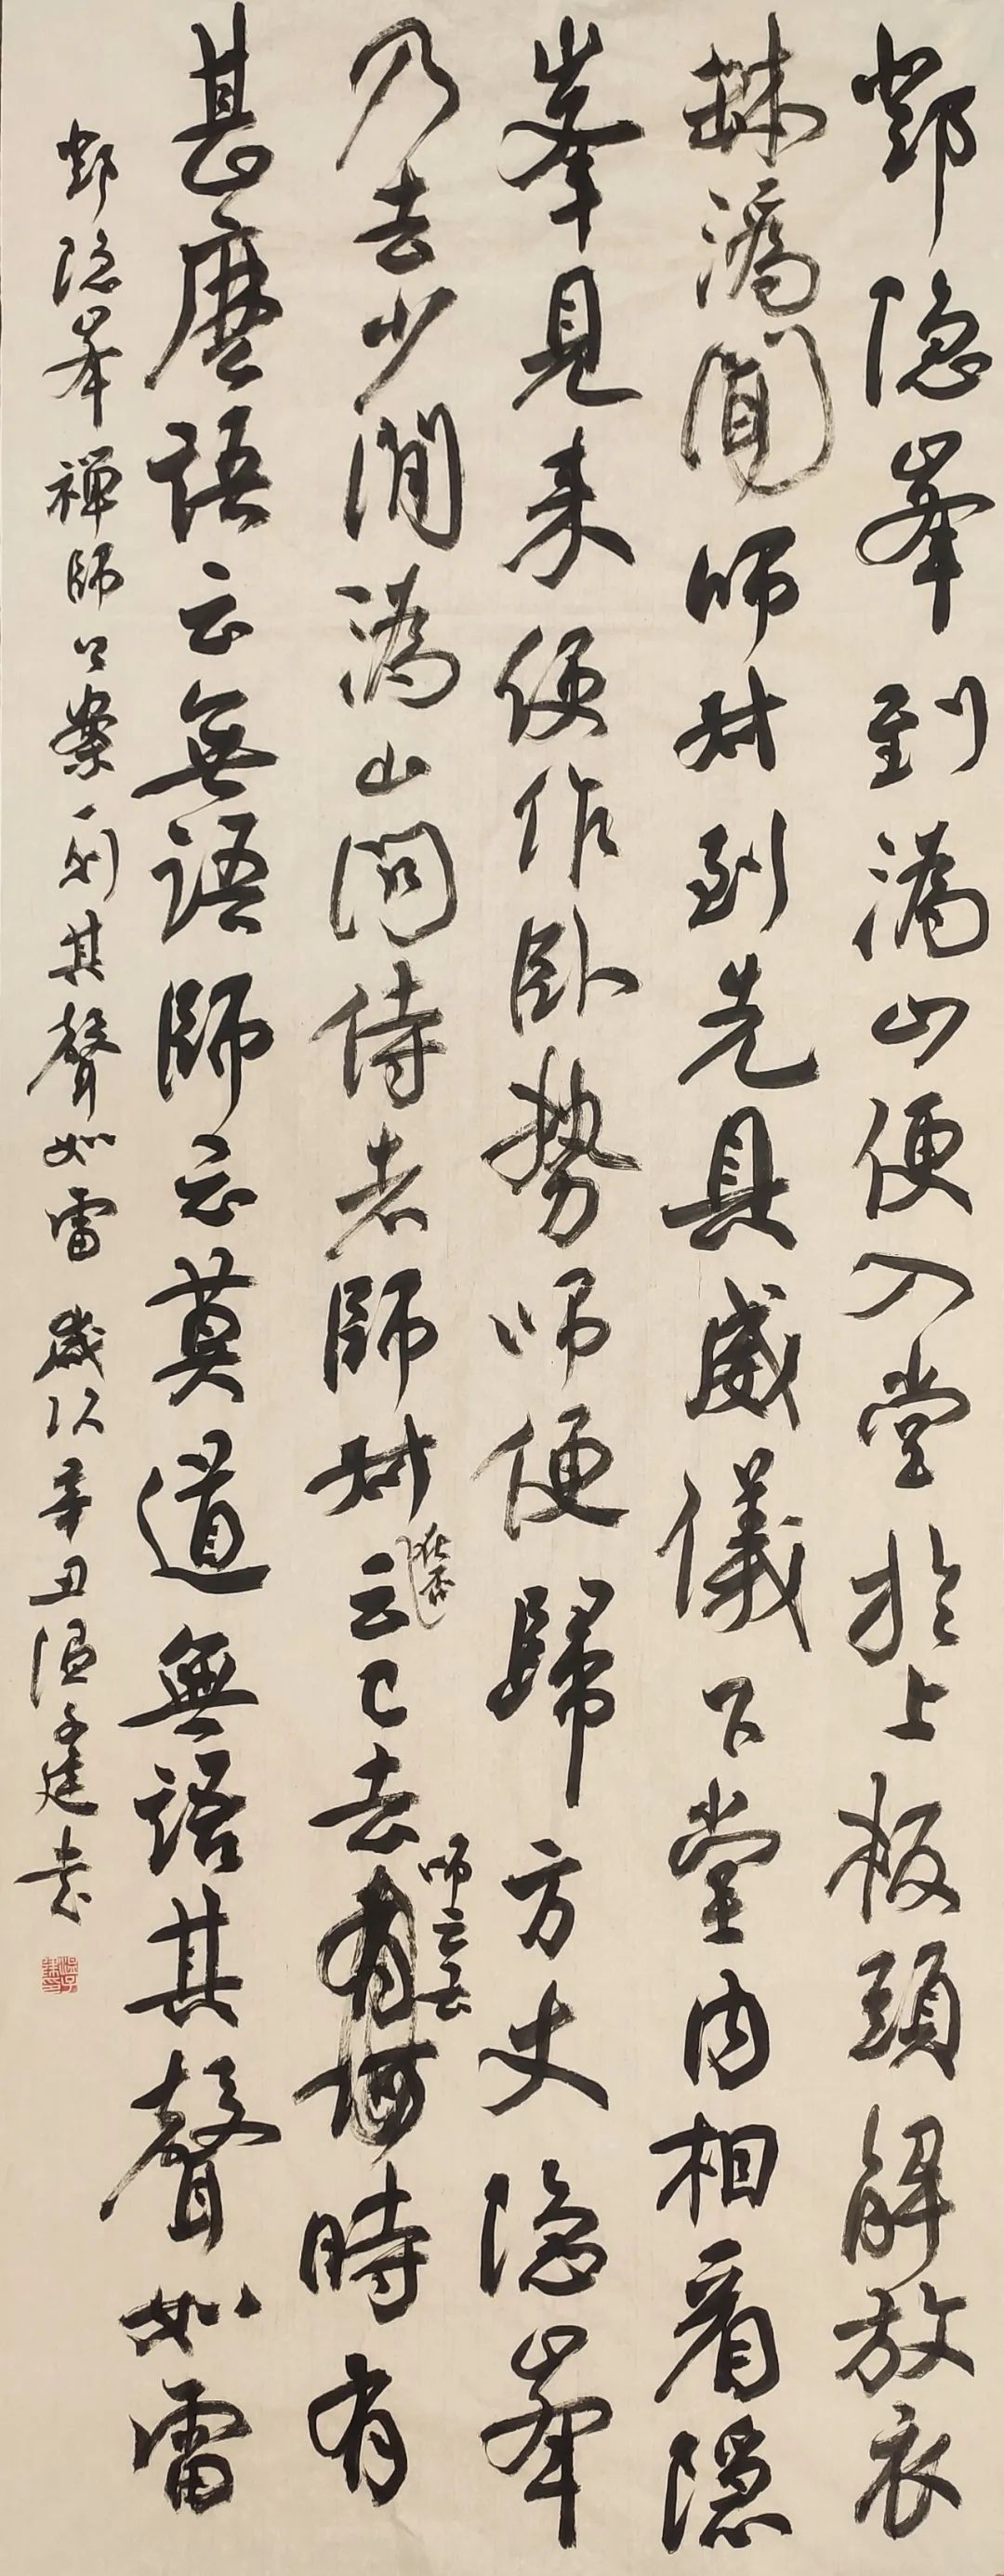 鄧隱峯到溈山便入堂於上板頭解放衣
鉢溈聞師叔到先具威儀下堂內相看隱
峯見來便作卧勢師便歸方丈隱峯
乃去少間溈山問侍者師叔在否云已去師云去有何時有
甚麼語云無語師云莫道無語其聲如雷
鄧隱峯禪師公案一則其聲如雷 歲次辛丑温子建书